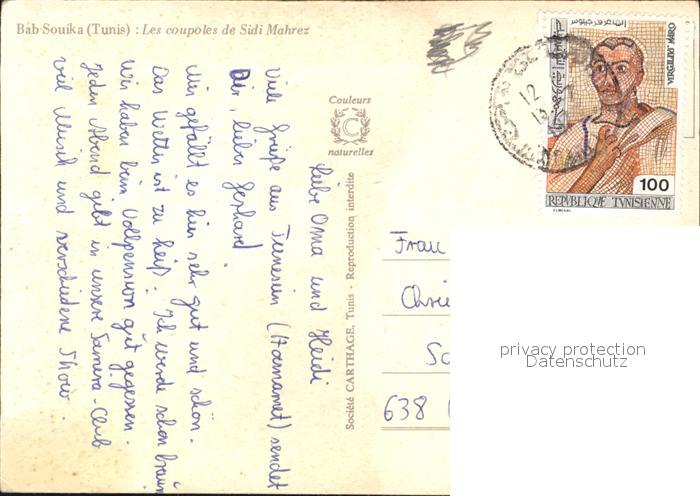 Bab Souika (Tunis) : Les coupoles de Sidi Mahrez
Couleurs
C
naturelles
Société CARTHAGE, Tunis - Reproduction interdite
Liebe Oma und Heidi
Viele Grüße aus Tunesien (Hammamet) sendet
Dir, lieber Gerhard.
Mir gefällt es hier sehr gut und schön.
Das Wetter ist zu heiß. Ich werde schon braun
Wir haben beim Vollpension gut gegessen.
Jeden Abend gibt in unsere Samira-Club
viel Musik und verschiedene Show.
VIRGILIUS MARO
100
REPUBLIQUE TUNISIENNE
12
Frau
Chri
638
privacy protection
Datenschutz